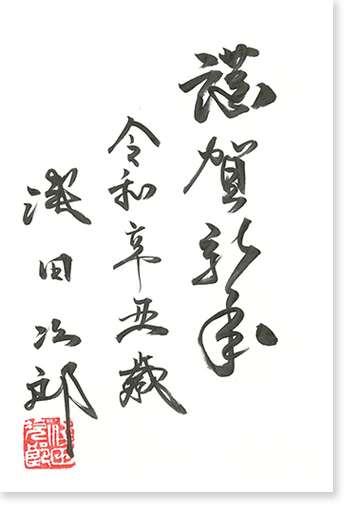 謹賀新年
令和辛丑歳
浅田次郎